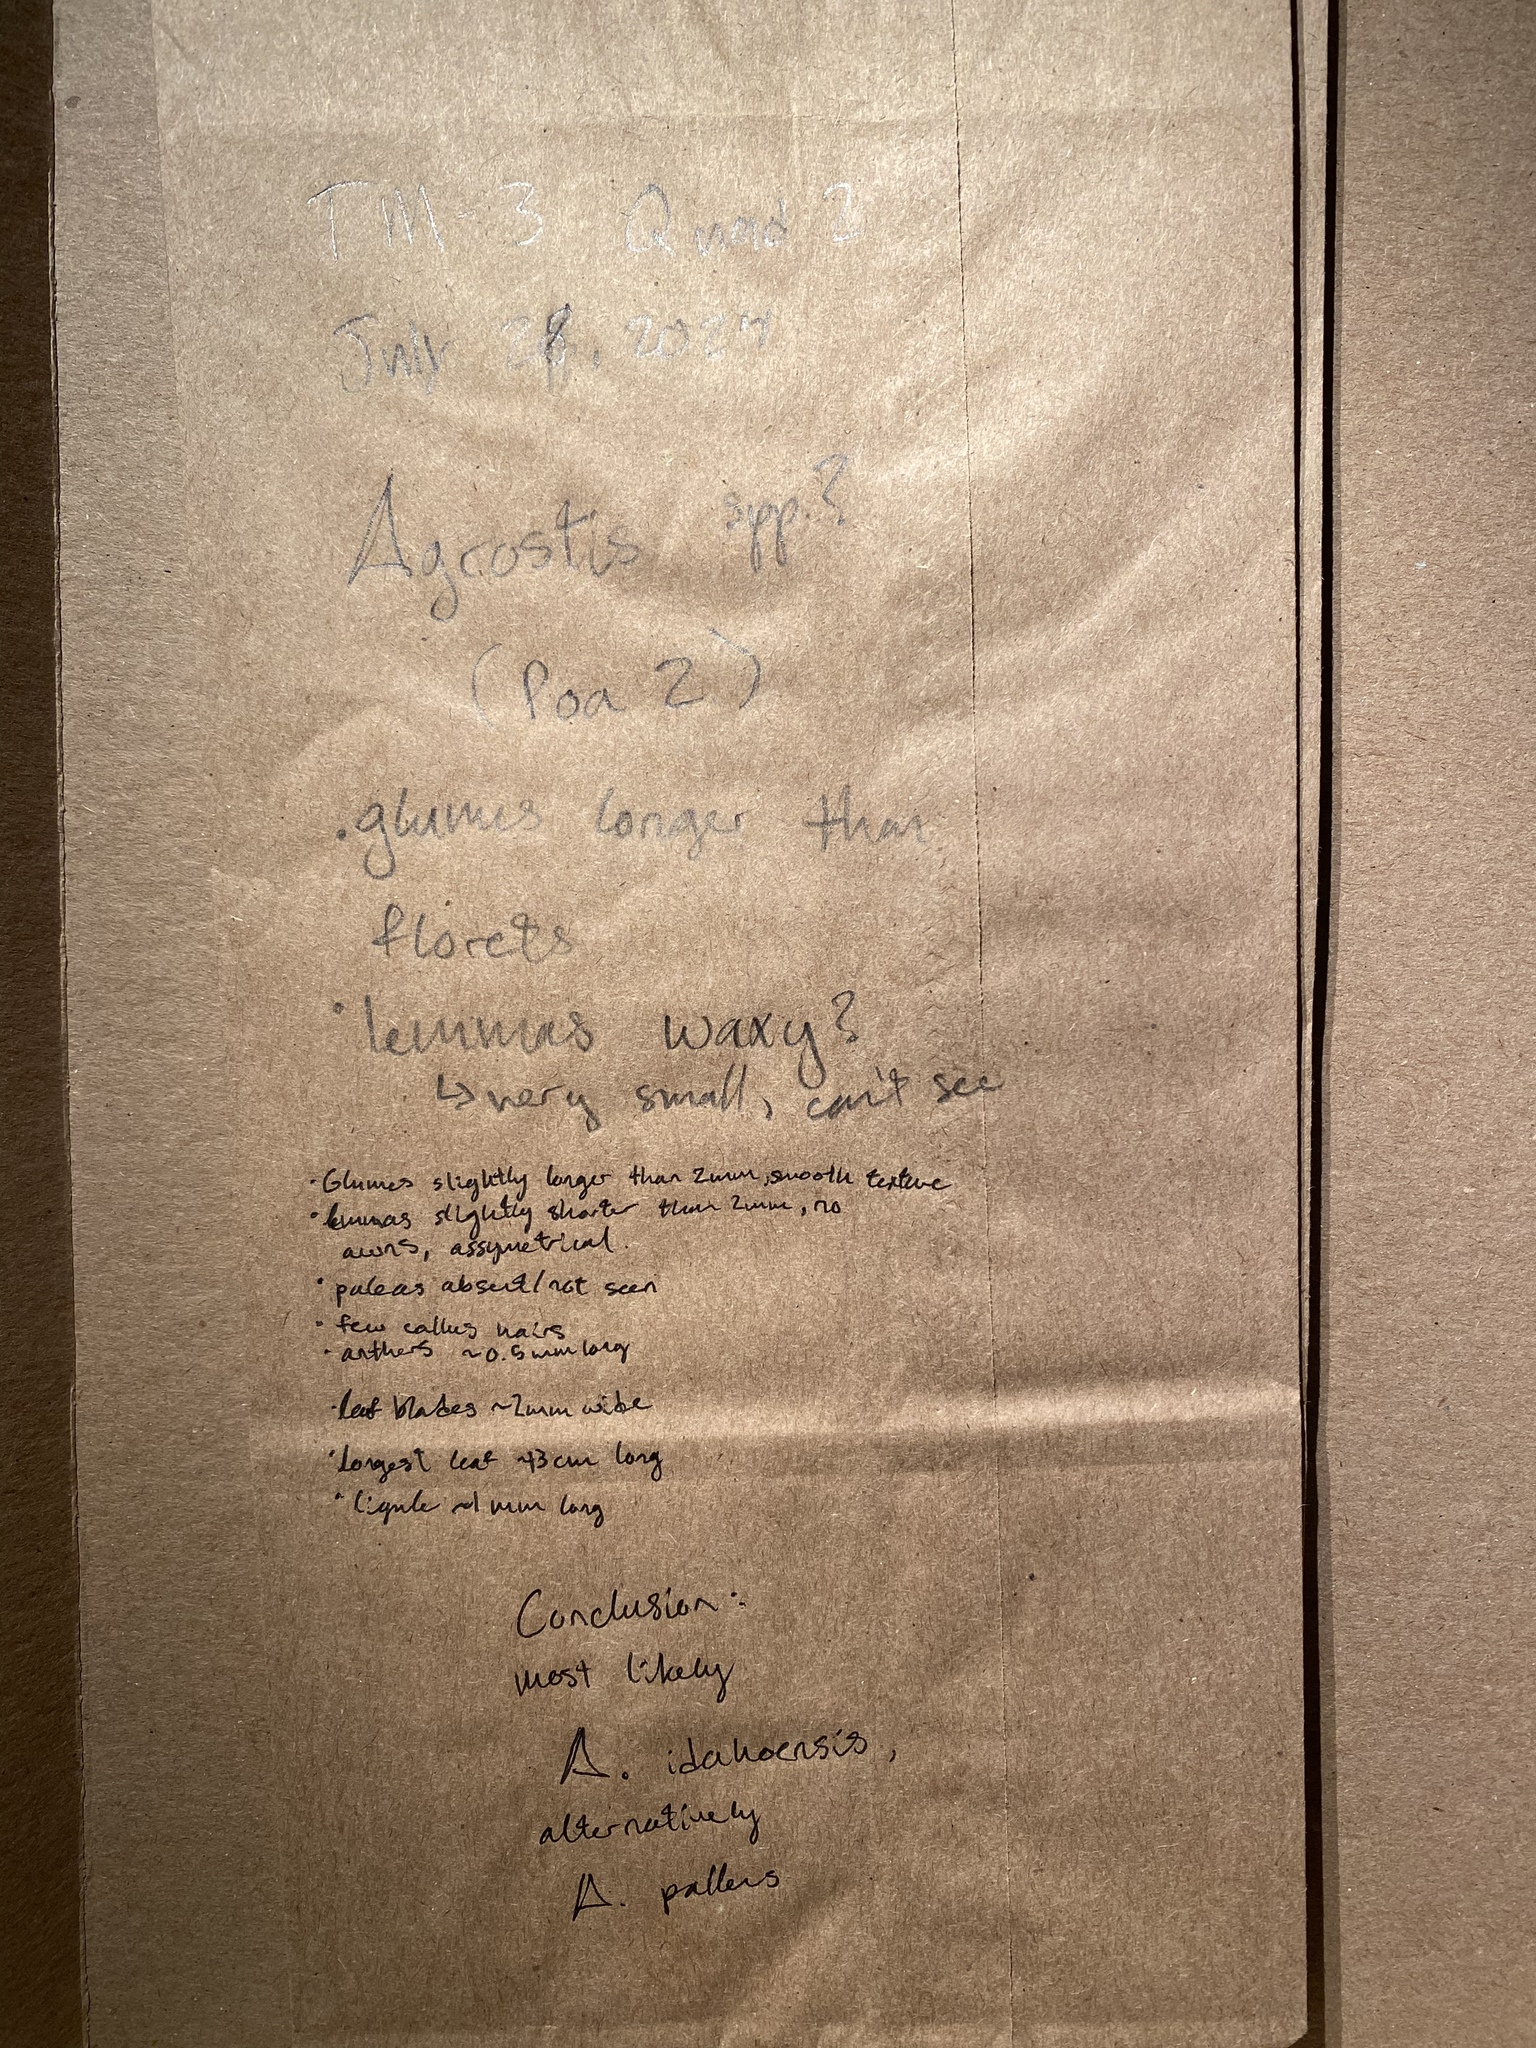 TM-3 Quad 2
July 28, 2024
Agrostis spp.?
(Poa 2)
• glumes longer than
florets
• lemmas waxy?
↳ very small, can't see
• Glumes slightly longer than 2mm, smooth texture
• lemmas slightly shorter than 2mm, no
awns, assymetrical.
• paleas absent/not seen
• few callus hairs
• anthers ~0.5mm long
• leaf blades ~2mm wide
• longest leaf ~13cm long
• ligule ~1mm long
Conclusion:
most likely
A. idahoensis,
alternatively
A. pallens